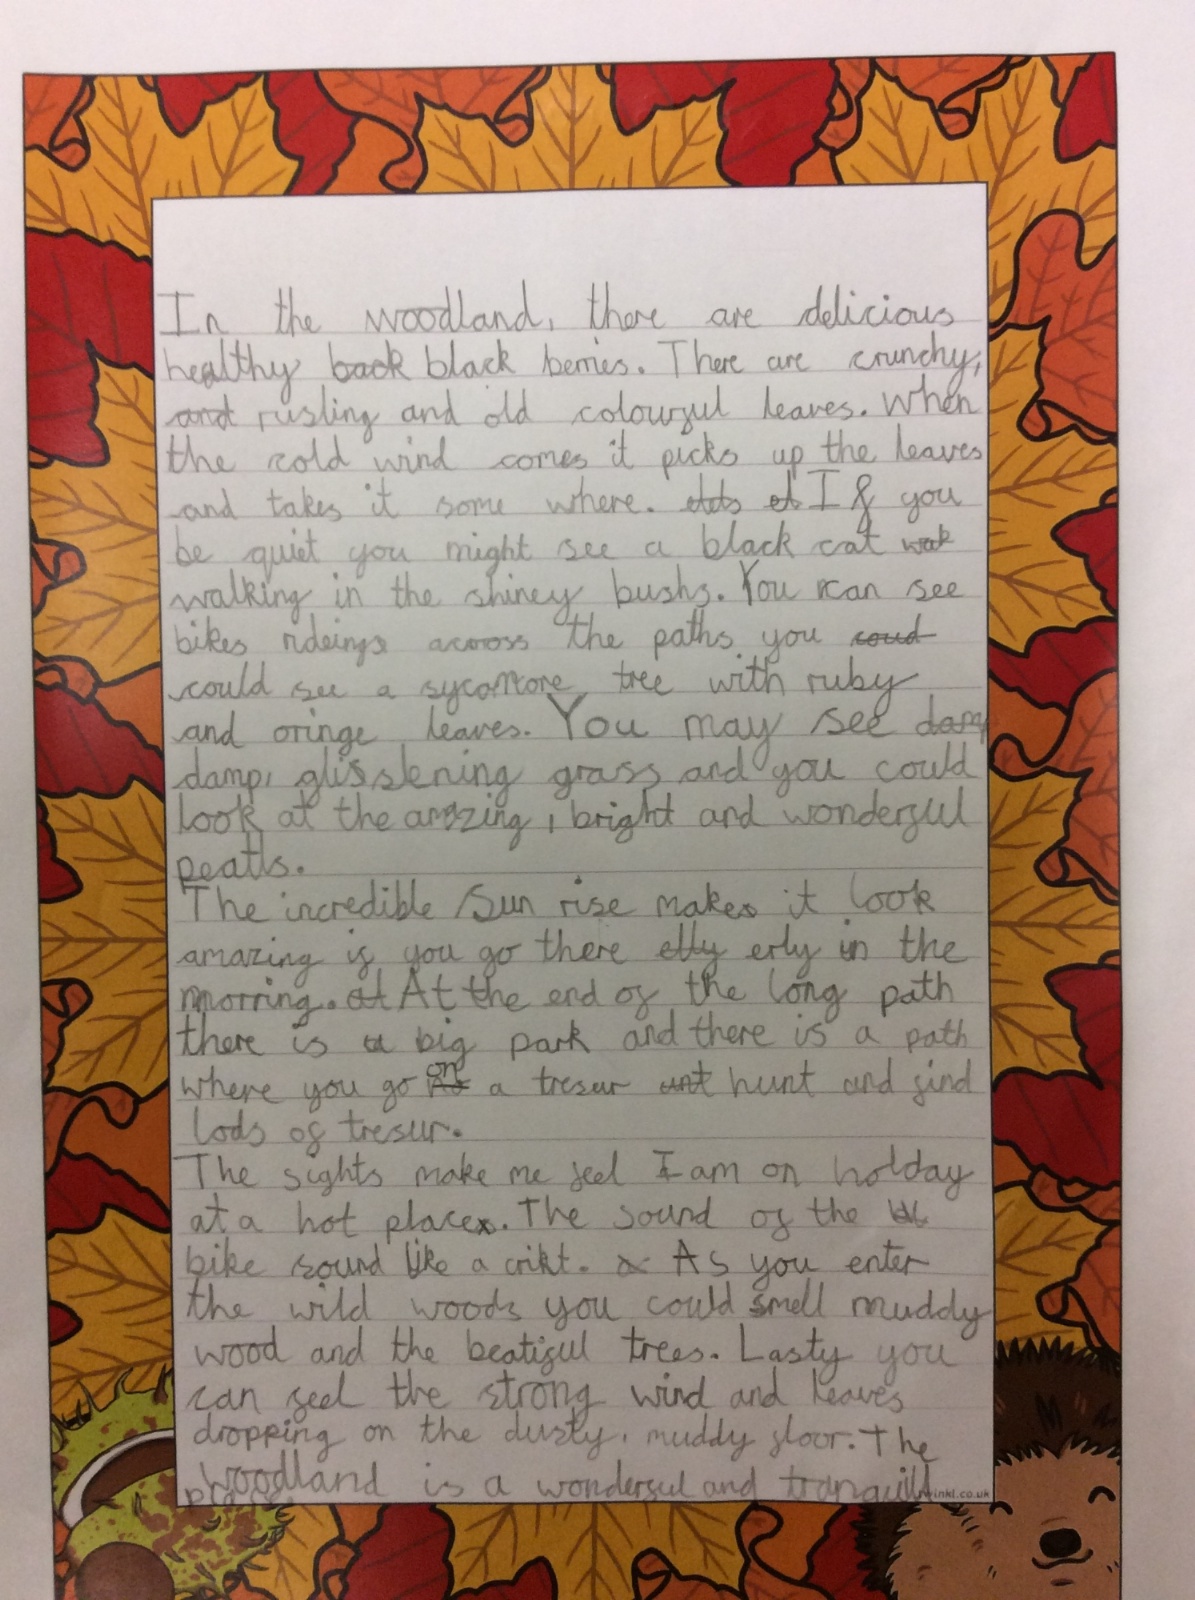 In the woodland, there are delicious
healthy back black berries. There are crunchy,
and rusling and old colourful leaves. When
the cold wind comes it picks up the leaves
and takes it some where. If you
be quiet you might see a black cat wak
walking in the shiney bushs. You can see
bikes rideings across the paths you coud
could see a sycamore tree with ruby
and oringe leaves. You may see damp
damp, glisslening grass and you could
look at the amazing, bright and wonderful
peatls.
The incredible Sun rise makes it look
amazing if you go there elly erly in the
morring. at At the end of the long path
there is a big park and there is a path
where you go on a tresur unt hunt and find
lods of tresur.
The sights make me feel I am on holday
at a hot place. The sound of the
bike sound like a crikt. As you enter
the wild woods you could smell muddy
wood and the beatiful trees. Lasty you
can feel the strong wind and leaves
dropping on the dusty, muddy floor. The
woodland is a wonderful and tranquill
place.
winkl.co.uk